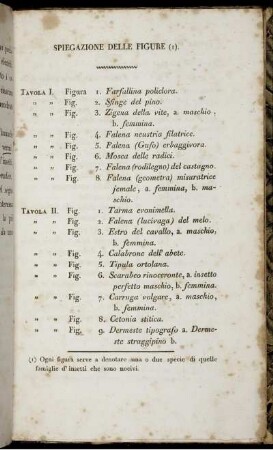 SPIEGAZIONE DELLE FIGURE (1).
TAVOLA I. Figura 1. Farfallina policlora.
" " Fig. 2. Sfinge del pino.
" " Fig. 3. Zigena della vite, a. maschio,
b. femmina.
" " Fig. 4. Falena neustria filatrice.
" " Fig. 5. Falena (Gufo) erbaggivora.
" " Fig. 6. Mosca delle radici.
" " Fig. 7. Falena (rodilegno) del castagno.
" " Fig. 8. Falena (geometra) misuratrice
jemale, a. femmina, b. ma-
schio.
TAVOLA II. Fig. 1. Tarma evonimella.
" " Fig. 2. Falena (lucivaga) del melo.
" " Fig. 3. Estro del cavallo, a. maschio,
b. femmina.
" " Fig. 4. Calabrone dell' abete.
" " Fig. 5. Tipula ortolana.
" " Fig. 6. Scarabeo rinoceronte, a. insetto
perfetto maschio, b. femmina.
" " Fig. 7. Carruga volgare, a. maschio,
b. femmina.
" " Fig. 8. Cetonia stitica.
" " Fig. 9. Dermeste tipografo a. Derme-
ste straggipino b.
(1) Ogni figura serve a denotare una o due specie di quelle
famiglie d' insetti che sono nocivi.